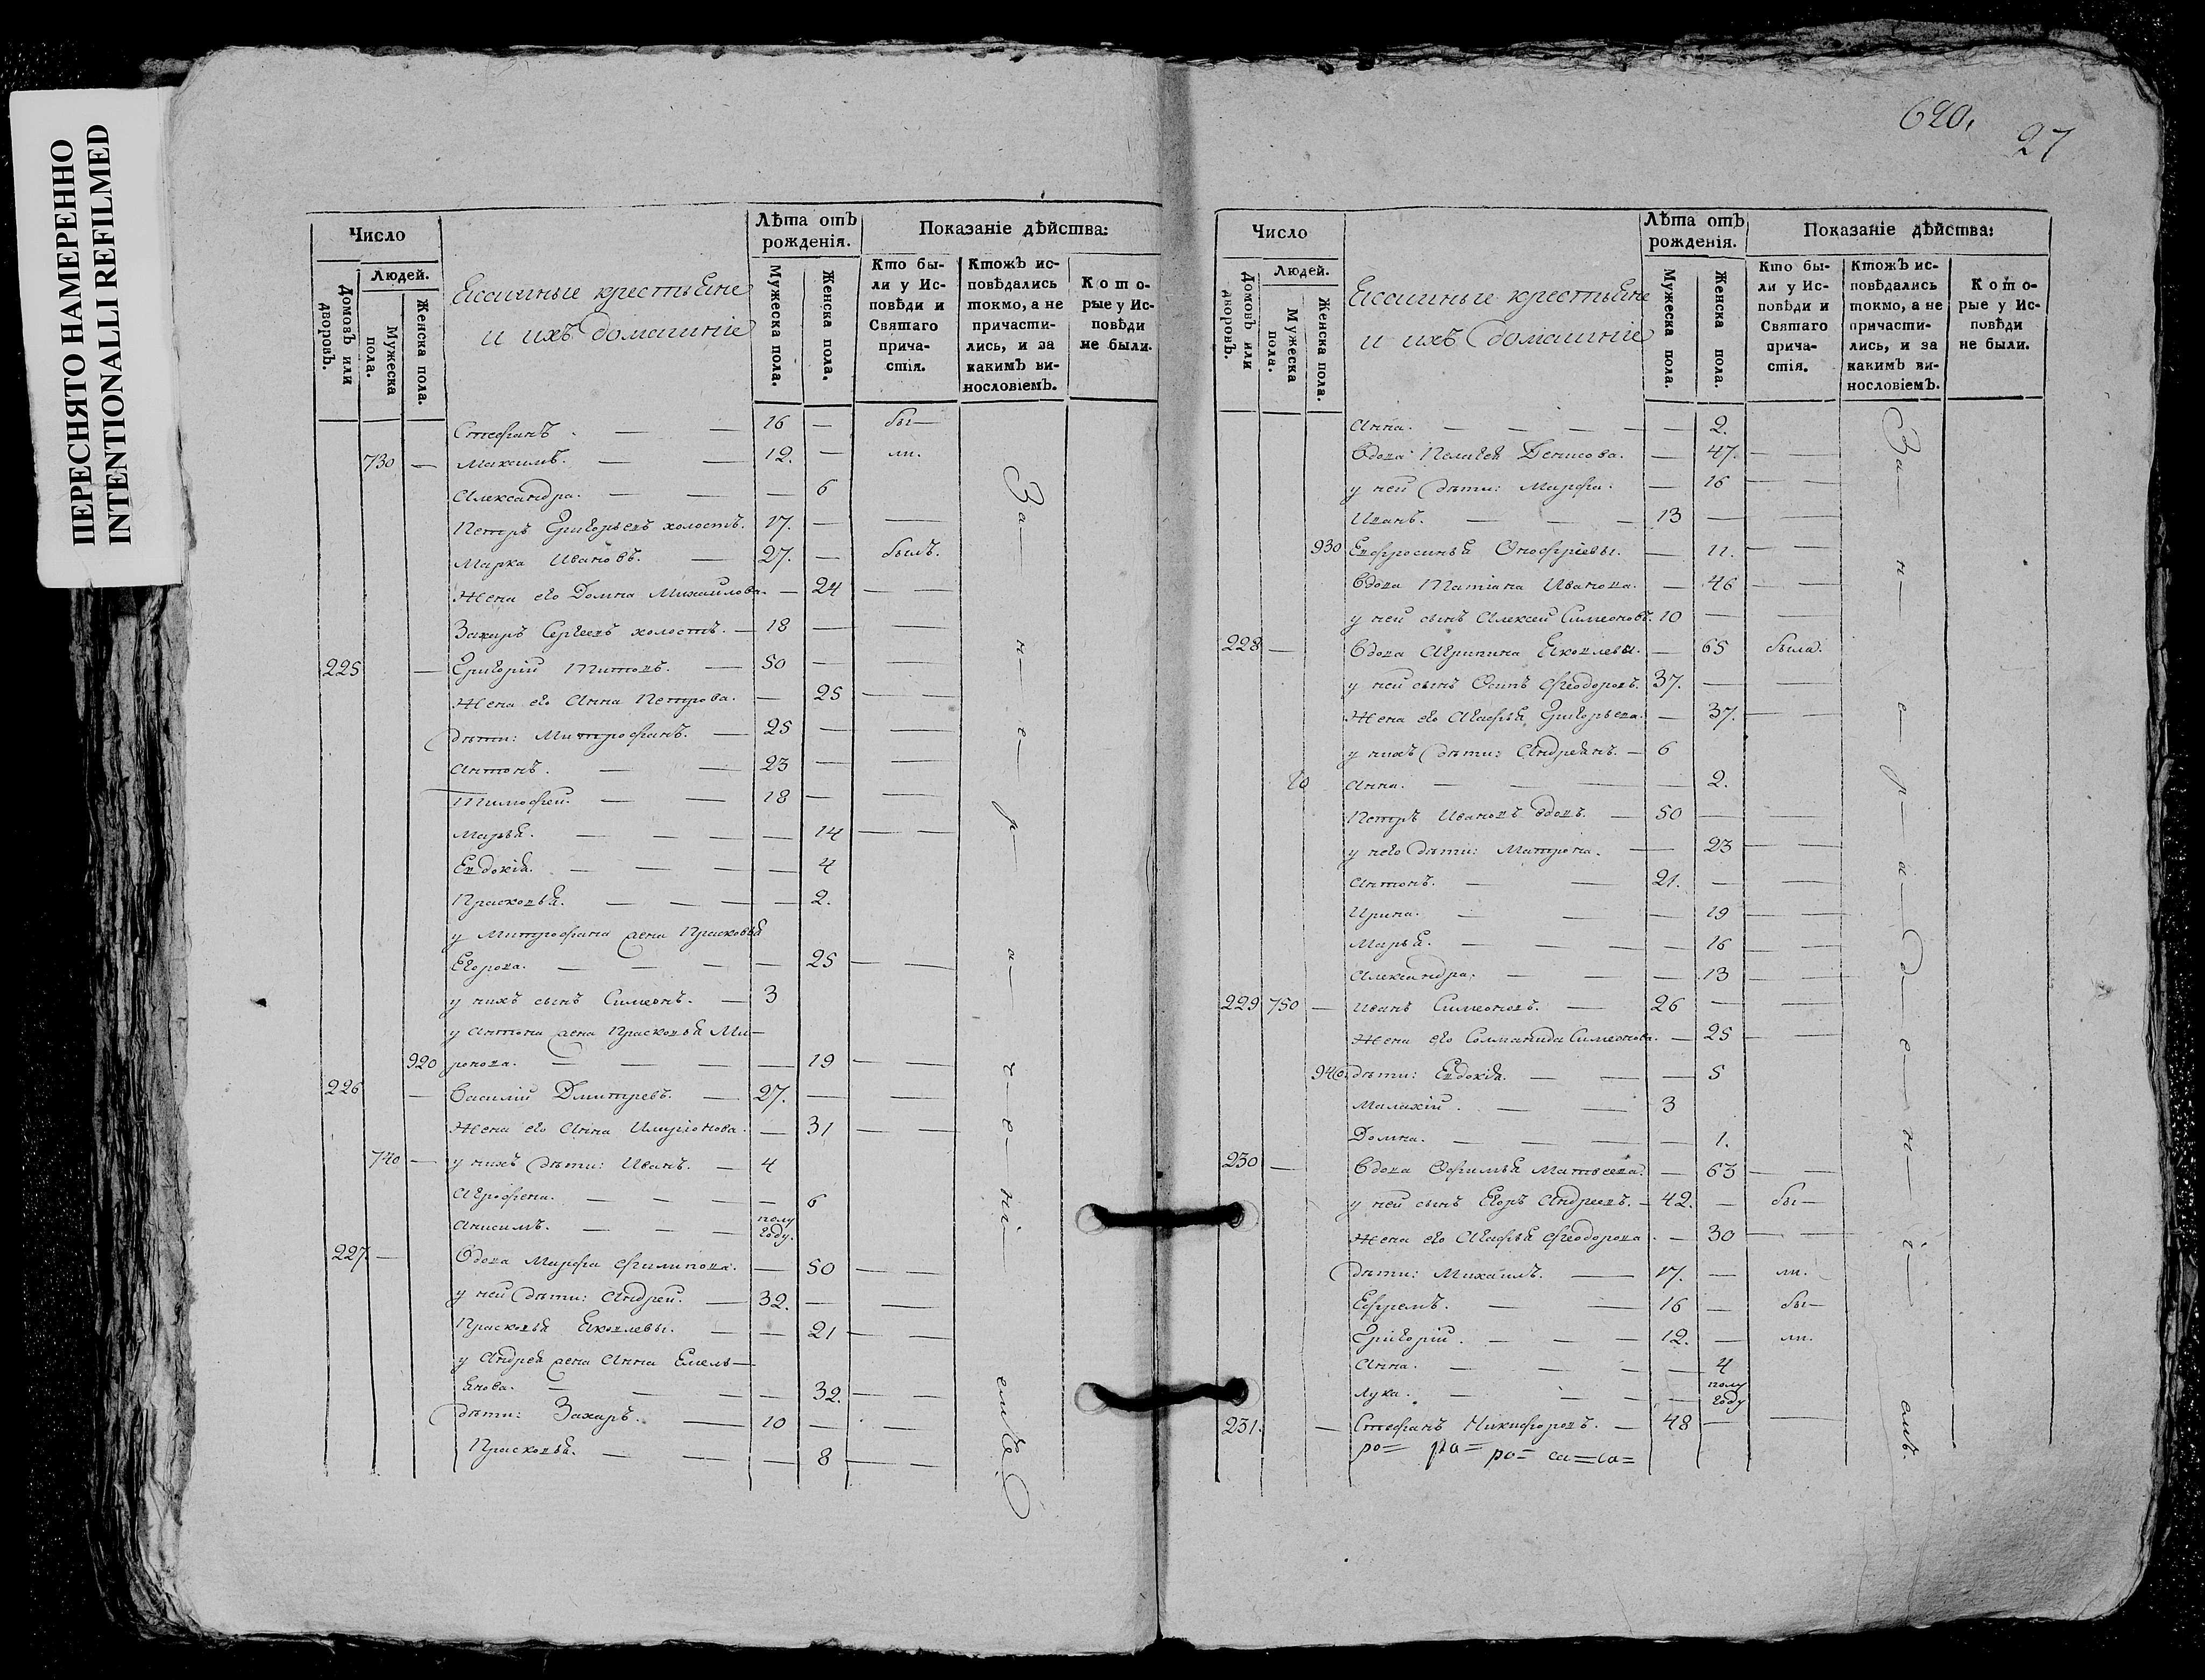 ПЕРЕСНЯТО НАМЕРЕННО
INTENTIONALLI REFILMED
Число
Людей.
Домовъ или дворовъ.
Мужеска пола.
Женска пола.
крестьяне
и ихъ домашніе
Лѣта отъ рожденія.
Мужеска пола.
Женска пола.
Показаніе дѣйства:
Кто были у Исповѣди и Святаго причастія.
Ктожъ исповѣдались токмо, а не причастились, и за какимъ винословіемъ.
Которые у Исповѣди не были.
Стефанъ. — — 16 — бы—
730 — Максимъ. — — 12. — ли.
Александра. — — — 6
Петръ Григорьевъ холостъ. 17. — —
Марка Ивановъ. — 27. — былъ.
Жена его Домна Михаилова. — 24 — —
Захаръ Сергеевъ холостъ. — 18 — —
225 — Григорій Титовъ. — 50 — —
Жена его Анна Петрова. — 25 — —
дѣти: Митрофанъ. — 25 — —
Антонъ. — — 23 — —
Тимофей. — — 18 — —
Марья. — — — — 14 — —
Евдокія. — — — — 4
Прасковья. — — — — 2.
у Митрофана жена Прасковья
Егорова. — — — — 25 — —
у нихъ сынъ Симеонъ. — 3
у Антона жена Прасковья Ми—
920 ронова. — — — — 19 — —
226 — Василій Дмитревъ. — 27. — —
Жена его Анна Иларіонова. — 31 — —
740 — у нихъ дѣти: Иванъ. — 4
Агрофена. — — — — 6
Анисимъ. — — — полу году.
227. — Вдова Марфа Филипова. — 50 — —
у ней дѣти: Андрей. — 32. — —
Прасковья Яковлевы. — — 21 — —
у Андрея жена Анна Емель—
янова. — — — — 32. — —
дѣти: Захаръ. — 10 — —
Прасковья. — — — 8 — —
За—н—е—р—а—ч—е—ні—емъ
620.
27
Число
Людей.
Домовъ или дворовъ.
Мужеска пола.
Женска пола.
крестьяне
и ихъ домашніе
Лѣта отъ рожденія.
Мужеска пола.
Женска пола.
Показаніе дѣйства:
Кто были у Исповѣди и Святаго причастія.
Ктожъ исповѣдались токмо, а не причастились, и за какимъ винословіемъ.
Которые у Исповѣди не были.
Анна. — — — — — 2.
Вдова Пелагея Денисова. — 47. — —
у ней дѣти: Марфа. — 16 — —
Иванъ. — — — 13 — —
930 Евфросинья Онофріевы. — 11. — —
Вдова Татіана Иванова. — 46 — —
у ней сынъ Алексей Симеоновъ. 10 — —
228 — Вдова Агрипина Яковлева. — 65 была.
у ней сынъ Осипъ Феодоровъ. 37. — —
Жена его Агафья Григорьева. — 37. — —
у нихъ дѣти: Андреянъ. — 6
Анна. — — — 2.
Петръ Ивановъ вдовъ. — 50 — —
у него дѣти: Матрона. — 23 — —
Антонъ. — — 21. — —
Ирина. — — — 19 — —
Марья. — — — — 16 — —
Александра. — — — 13 — —
229 750 — Иванъ Симеоновъ. — 26 — —
Жена его Соломанида Симеонова. — 25 — —
940. дѣти: Евдокія. — — — 5
Малахій. — — 3
Домна. — — — — 1.
230 — Вдова Офимья Матвеева. — 63 — —
у ней сынъ Егоръ Андреевъ. — 42. — бы—
Жена его Агафья Феодорова. — 30 — —
дѣти: Михаилъ. — 17. — ли.
Ефремъ. — — 16 — бы—
Григорій. — — — 12. — ли.
Анна. — — — — 4
Лука. — — — — полу году
231. — Стефанъ Никифоровъ. — 48 — —
ро= ра= ро=